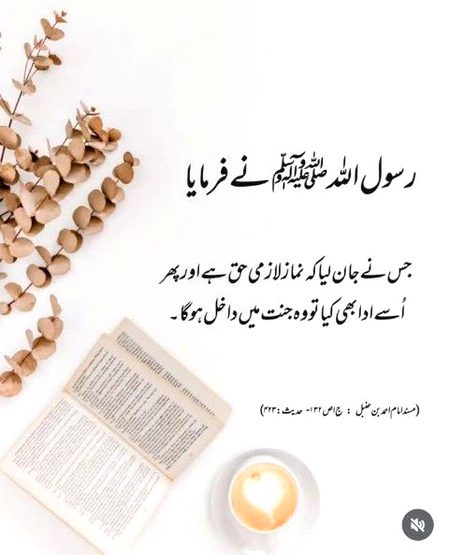 رسول اللہ ﷺ نے فرمایا
جس نے جان لیا کہ نماز لازمی حق ہے اور پھر
اُسے ادا بھی کیا تو وہ جنت میں داخل ہوگا ۔
(مسند امام احمد بن حنبل : ج۱ص ۱۳۲- حدیث: ۴۲۳)